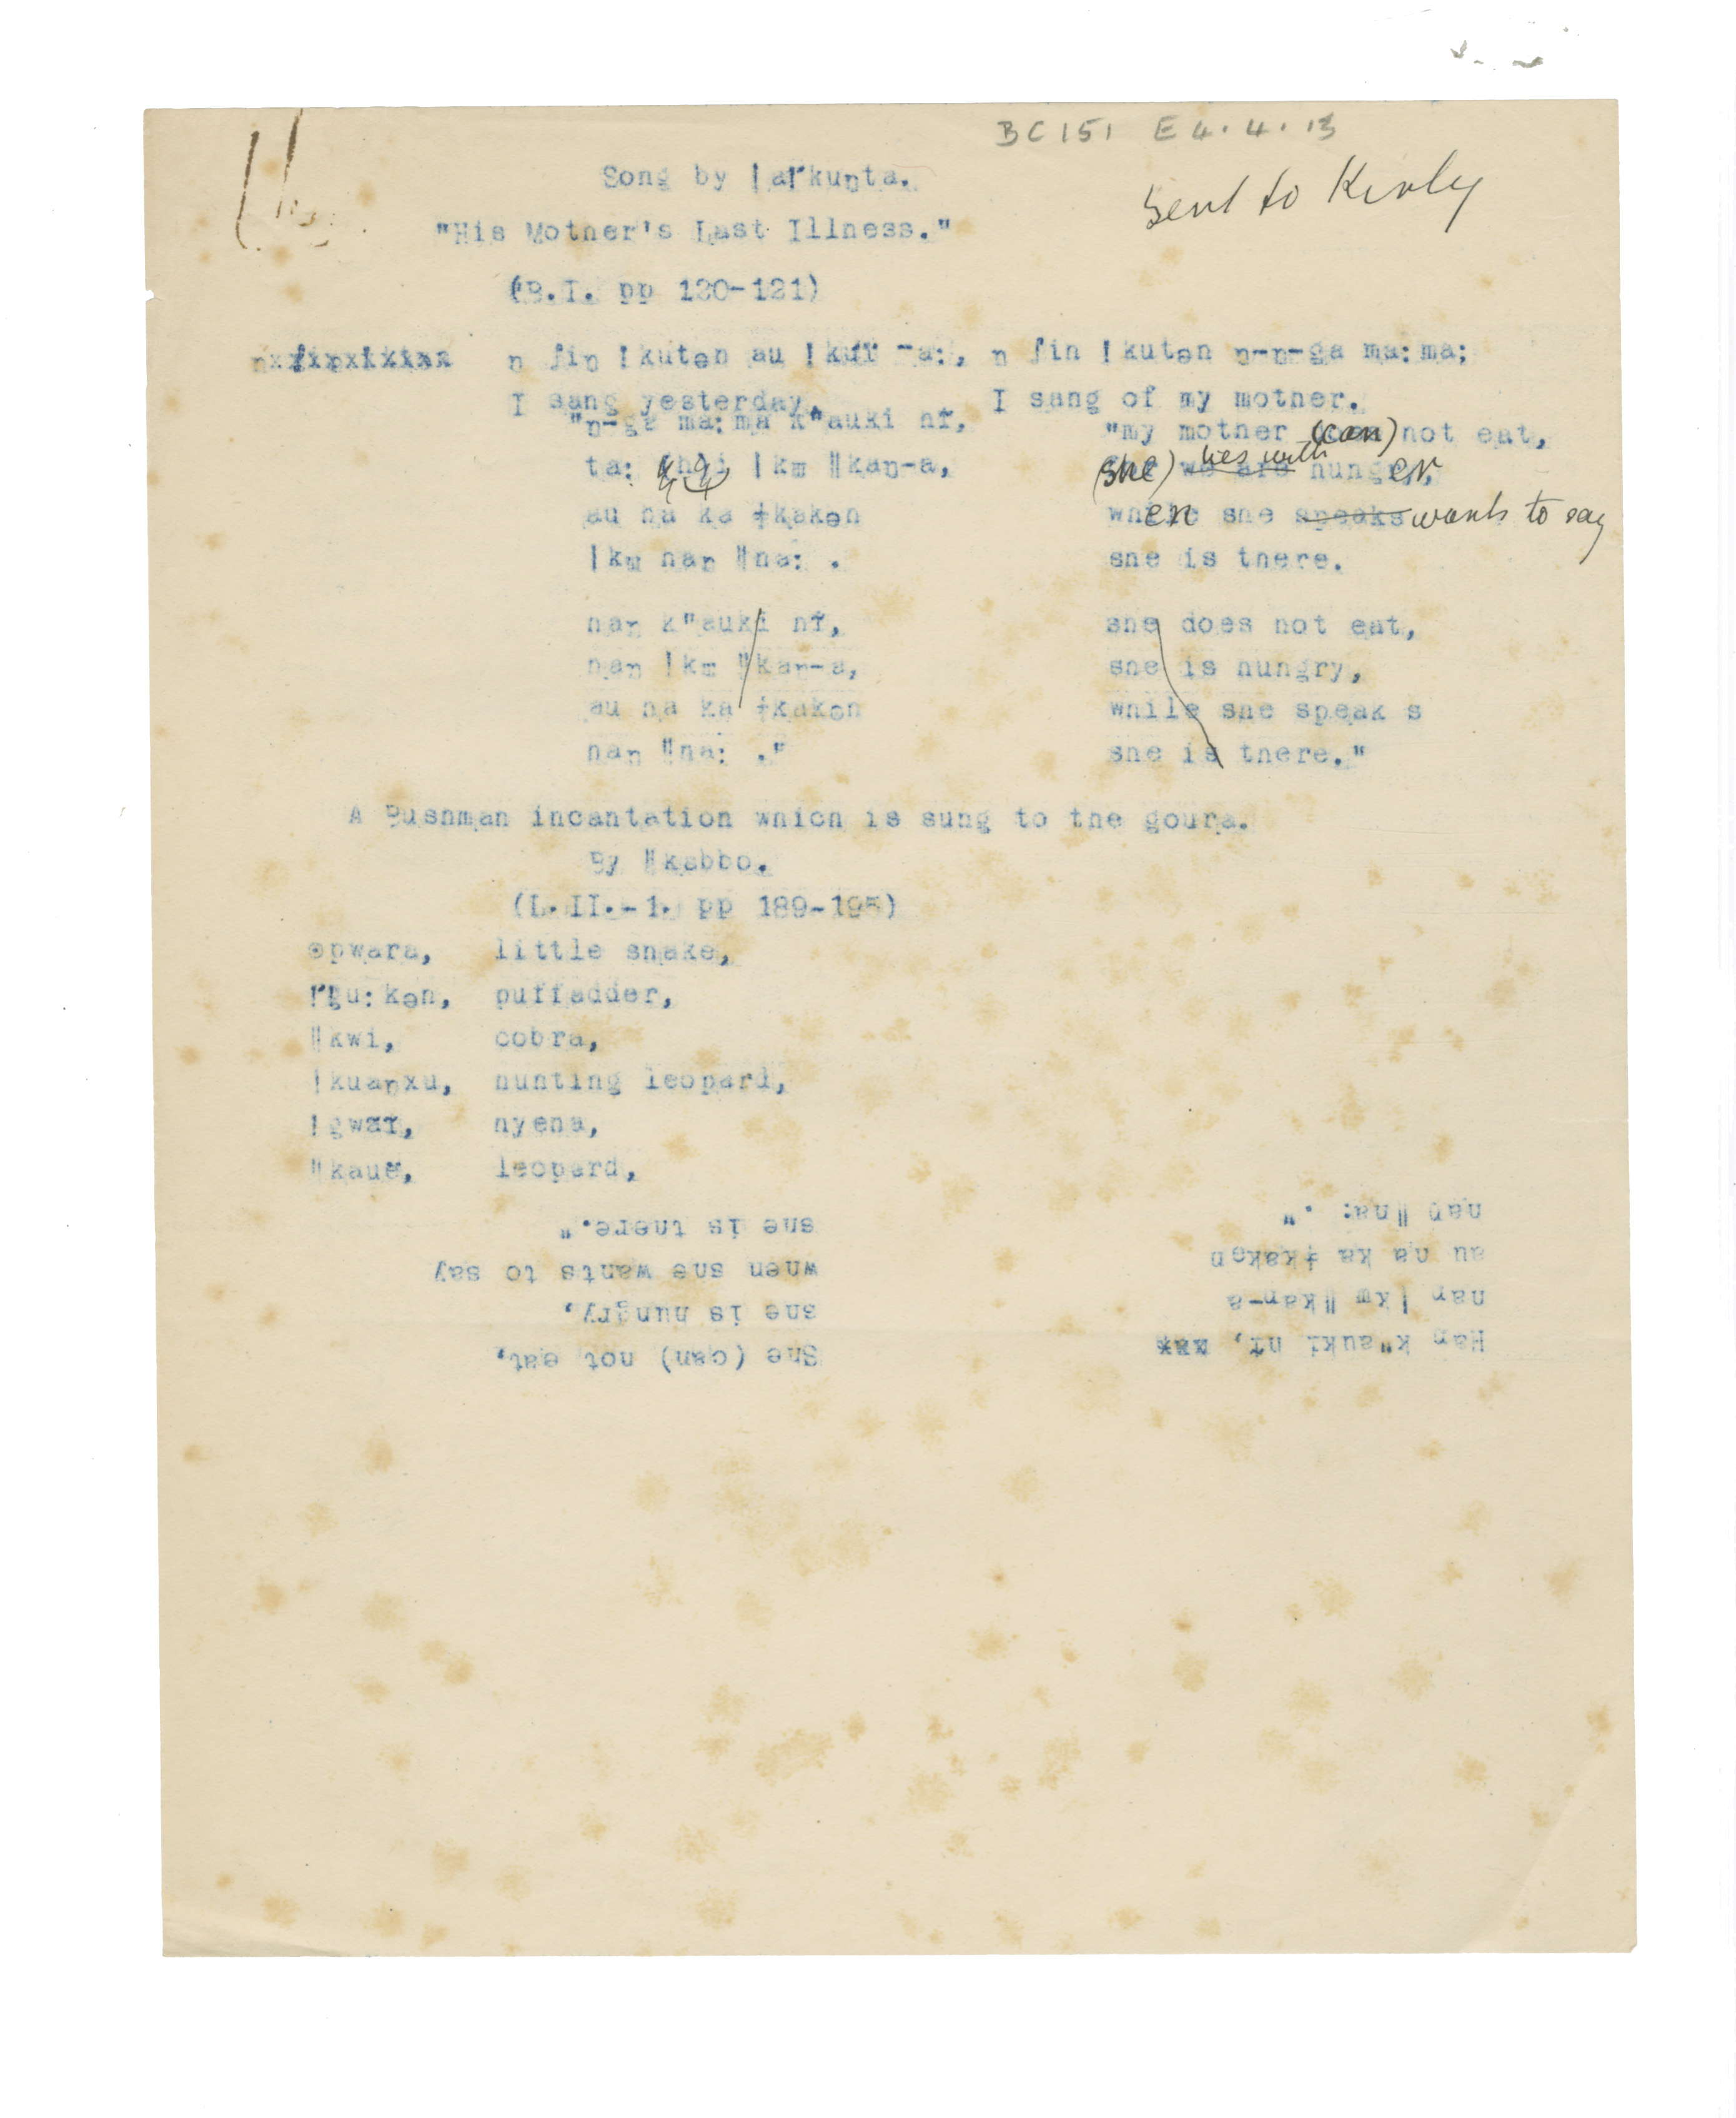 BC 151 E 4.4.13
Sent to Kirby
Song by |aɾkuņta.
"His Mother's Last Illness."
(B.I. pp 120-121)
n ʃin !kutən au !kuĩ -a:, n ʃin !kutən n-n-ga ma:ma;
I sang yesterday, I sang of my mother.
"n-ga ma:ma k"auki hĩ, "my mother (can) not eat,
ta: |km ǁkaŋ-a, (she) we are lies with hunger,
au ha ka ǂkakən when she speaks wants to say
|km haŋ ǁna: . she is there.
haŋ k"auki hĩ, she does not eat,
haŋ |km ǁkaŋ-a, she is hungry,
au ha ka ǂkakən while she speak s
haŋ ǁna: ." she is there."
A Bushman incantation which is sung to the goura.
By ǁkabbo.
(L.II.-1. pp 189-195)
ʘpwara, little snake,
!gu:kən, puffadder,
ǁkwi, cobra,
|kuaŋxu, hunting leopard,
!gwãĩ, hyena,
ǁkauë, leopard,
Haŋ k"auki hĩ, She (can) not eat,
haŋ |km ǁkaŋ-a she is hungry,
au ha ka ǂkakən when she wants to say
haŋ ǁna: ." she is there."